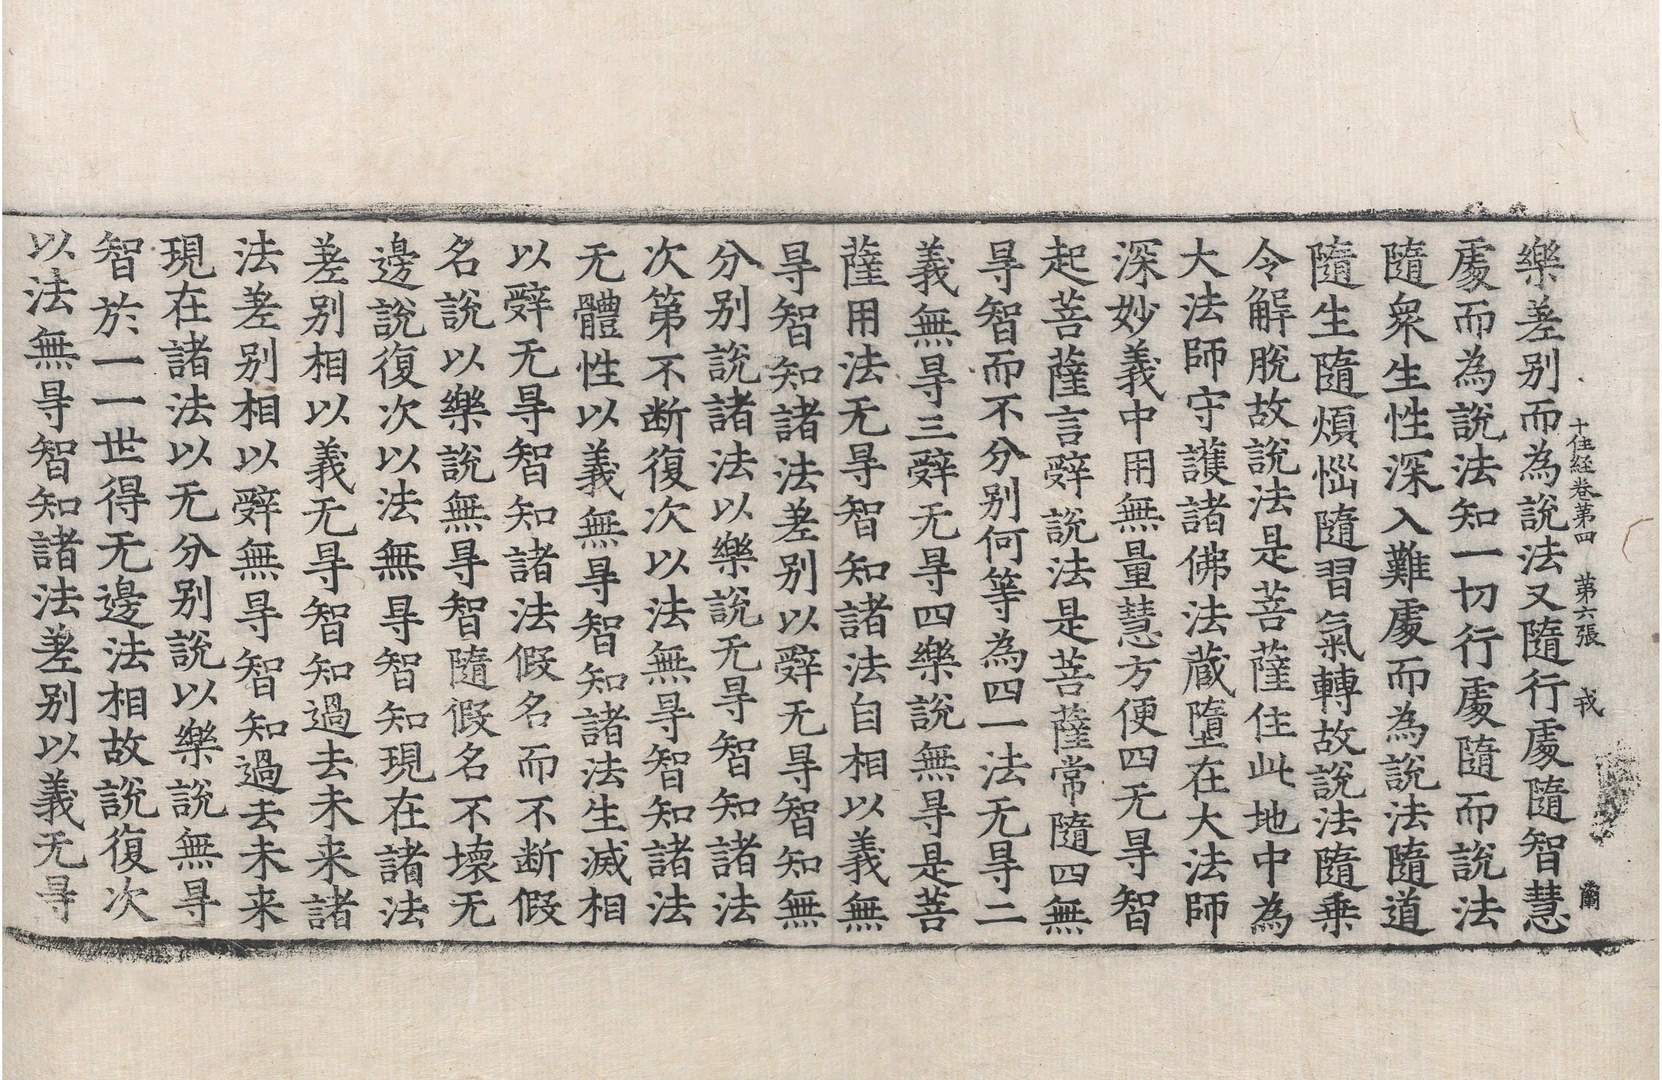 十住経卷第四 第六張 戎
樂差别而為說法又隨行處隨智慧
處而為說法知一切行處隨而說法
隨衆生性深入難處而為說法隨道
隨生隨煩惱隨習氣轉故說法隨乗
令解脫故說法是菩薩住此地中為
大法師守護諸佛法藏墮在大法師
深妙義中用無量慧方便四无㝵智
起菩薩言辤說法是菩薩常隨四無
㝵智而不分别何等為四一法无㝵二
義無㝵三辤无㝵四樂說無㝵是菩
薩用法无㝵智知諸法自相以義無
㝵智知諸法差别以辤无㝵智知無
分别說諸法以樂說无㝵智知諸法
次第不断復次以法無㝵智知諸法
无體性以義無㝵智知諸法生滅相
以辤无㝵智知諸法假名而不断假
名說以樂說無㝵智隨假名不壞无
邊說復次以法無㝵智知現在諸法
差别相以義无㝵智知過去未来諸
法差别相以辤無㝵智知過去未来
現在諸法以无分别說以樂說無㝵
智於一一世得无邊法相故說復次
以法無㝵智知諸法差别以義无㝵